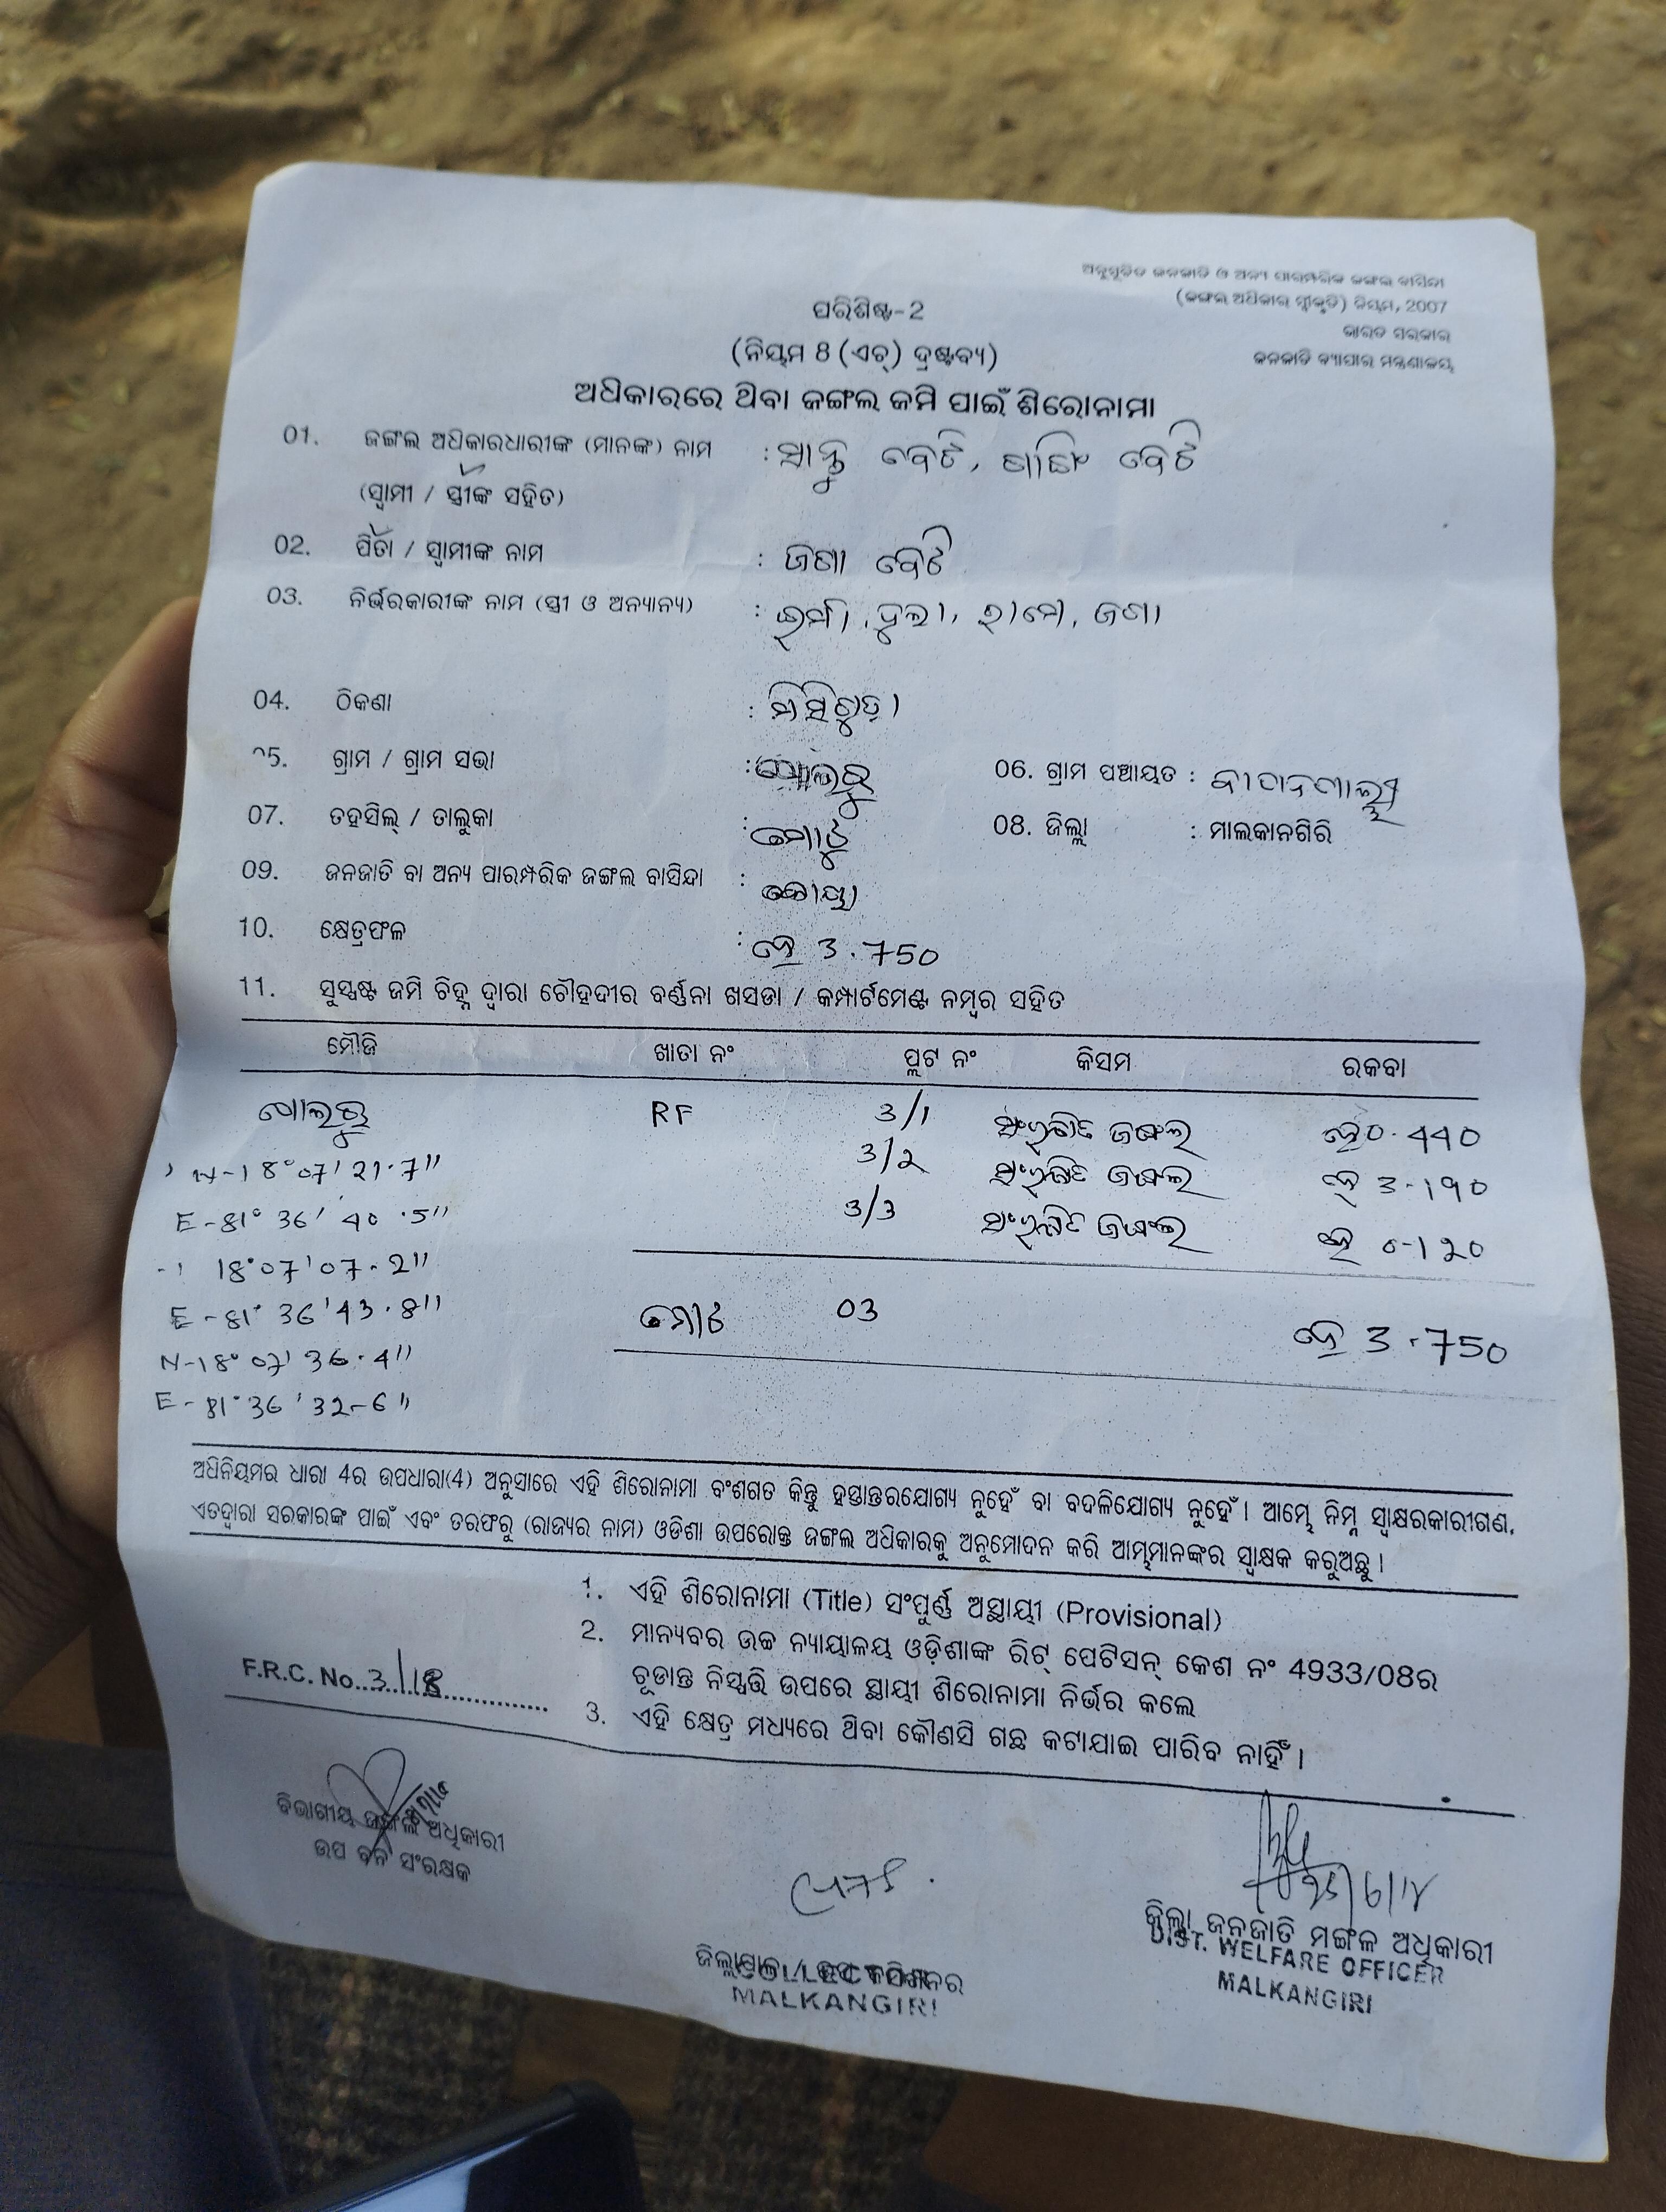 ଅନୁସୂଚିତ ଜନଜାତି ଓ ଅନ୍ୟ ପାରମ୍ପରିକ ଜଙ୍ଗଲ ବାସିନ୍ଦା
(ଜଙ୍ଗଲ ଅଧିକାର ସ୍ୱୀକୃତି) ନିୟମ, 2007
ଭାରତ ସରକାର
ଜନଜାତି ବ୍ୟାପାର ମନ୍ତ୍ରଣାଳୟ
ପରିଶିଷ୍ଟ-2
(ନିୟମ 8 (ଏଚ୍) ଦ୍ରଷ୍ଟବ୍ୟ)
ଅଧିକାରରେ ଥିବା ଜଙ୍ଗଲ ଜମି ପାଇଁ ଶିରୋନାମା
01. ଜଙ୍ଗଲ ଅଧିକାରଧାରୀଙ୍କ (ମାନଙ୍କ) ନାମ :
(ସ୍ୱାମୀ / ସ୍ତ୍ରୀଙ୍କ ସହିତ)
02. ପିତା / ସ୍ୱାମୀଙ୍କ ନାମ :
03. ନିର୍ଭରକାରୀଙ୍କ ନାମ (ସ୍ତ୍ରୀ ଓ ଅନ୍ୟାନ୍ୟ) :
04. ଠିକଣା :
05. ଗ୍ରାମ / ଗ୍ରାମ ସଭା : 06. ଗ୍ରାମ ପଞ୍ଚାୟତ :
07. ତହସିଲ୍ / ତାଲୁକା : ମୋଟୁ 08. ଜିଲ୍ଲା : ମାଲକାନଗିରି
09. ଜନଜାତି ବା ଅନ୍ୟ ପାରମ୍ପରିକ ଜଙ୍ଗଲ ବାସିନ୍ଦା : କୋୟା
10. କ୍ଷେତ୍ରଫଳ : ହେ 3.750
11. ସୁସ୍ପଷ୍ଟ ଜମି ଚିହ୍ନ ଦ୍ୱାରା ଚୌହଦୀର ବର୍ଣ୍ଣନା ଖସଡା / କମ୍ପାର୍ଟମେଣ୍ଟ ନମ୍ବର ସହିତ
ମୌଜି ଖାତା ନଂ ପ୍ଲଟ ନଂ କିସମ ରକବା
RF 3/1 ସଂରକ୍ଷିତ ଜଙ୍ଗଲ ହେ 0.440
N-18°07'21.7" 3/2 ସଂରକ୍ଷିତ ଜଙ୍ଗଲ ହେ 3-190
E-81° 36' 40.5" 3/3 ସଂରକ୍ଷିତ ଜଙ୍ଗଲ ହେ 0-120
18°07'07.2"
E-81° 36'43.8" ମୋଟ 03 ହେ 3.750
N-18°07'36.4"
E-81°36'32-6"
ଅଧିନିୟମର ଧାରା 4ର ଉପଧାରା(4) ଅନୁସାରେ ଏହି ଶିରୋନାମା ବଂଶଗତ କିନ୍ତୁ ହସ୍ତାନ୍ତରଯୋଗ୍ୟ ନୁହେଁ ବା ବଦଳିଯୋଗ୍ୟ ନୁହେଁ। ଆମ୍ଭେ ନିମ୍ନ ସ୍ୱାକ୍ଷରକାରୀଗଣ,
ଏତଦ୍ୱାରା ସରକାରଙ୍କ ପାଇଁ ଏବଂ ତରଫରୁ (ରାଜ୍ୟର ନାମ) ଓଡିଶା ଉପରୋକ୍ତ ଜଙ୍ଗଲ ଅଧିକାରକୁ ଅନୁମୋଦନ କରି ଆମ୍ଭମାନଙ୍କର ସ୍ୱାକ୍ଷକ କରୁଅଛୁ।
1. ଏହି ଶିରୋନାମା (Title) ସଂପୁର୍ଣ୍ଣ ଅସ୍ଥାୟୀ (Provisional)
2. ମାନ୍ୟବର ଉଚ୍ଚ ନ୍ୟାୟାଳୟ ଓଡ଼ିଶାଙ୍କ ରିଟ୍ ପେଟିସନ୍ କେଶ ନଂ 4933/08ର
ଚୂଡାନ୍ତ ନିସ୍ପତ୍ତି ଉପରେ ସ୍ଥାୟୀ ଶିରୋନାମା ନିର୍ଭର କଲେ
F.R.C. No. 3/18
3. ଏହି କ୍ଷେତ୍ର ମଧ୍ୟରେ ଥିବା କୌଣସି ଗଛ କଟାଯାଇ ପାରିବ ନାହିଁ।
ବିଭାଗୀୟ ଜଙ୍ଗଲ ଅଧିକାରୀ
ଉପ ବନ ସଂରକ୍ଷକ
ଜିଲ୍ଲାପାଳ
COLLECTOR
MALKANGIRI
ଜିଲ୍ଲା ଜନଜାତି ମଙ୍ଗଳ ଅଧିକାରୀ
DIST. WELFARE OFFICER
MALKANGIRI